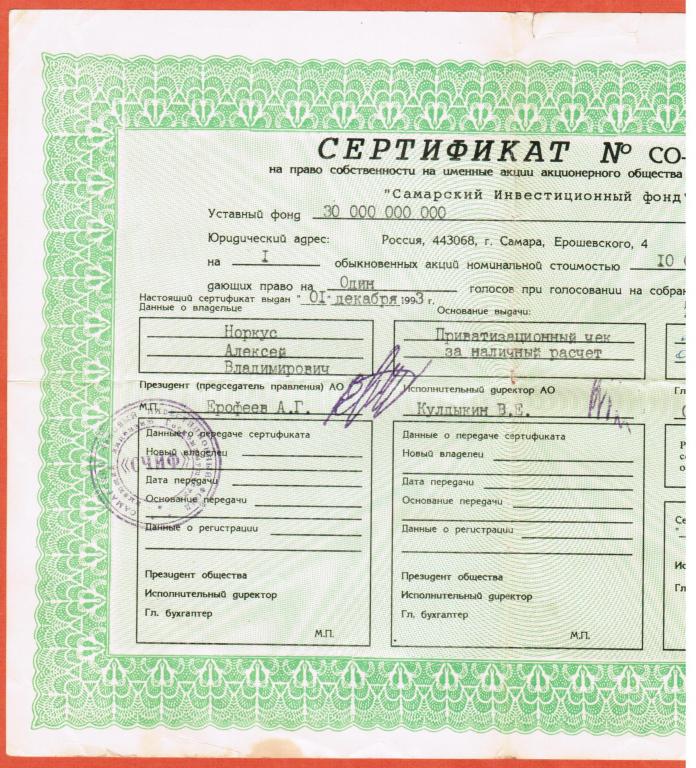 СЕРТИФИКАТ № СО-
на право собственности на именные акции акционерного общества
"Самарский Инвестиционный фонд"
Уставный фонд 30 000 000 000
Юридический адрес: Россия, 443068, г. Самара, Ерошевского, 4
на I обыкновенных акций номинальной стоимостью I0 0
дающих право на Один голосов при голосовании на собран
Настоящий сертификат выдан "01"декабря 1993 г.
Данные о владельце
Основание выдачи:
Норкус
Алексей
Владимирович
Приватизационный чек
за наличный расчет
Президент (председатель правления) АО
Исполнительный директор АО
Гл
М.П. Ерофеев А.Г.
Кулдыкин В.Е.
«СЧИФ»
Данные о передаче сертификата
Новый владелец
Дата передачи
Основание передачи
Данные о регистрации
Президент общества
Исполнительный директор
Гл. бухгалтер
М.П.
Данные о передаче сертификата
Новый владелец
Дата передачи
Основание передачи
Данные о регистрации
Президент общества
Исполнительный директор
Гл. бухгалтер
М.П.
Р
со
о
Се
"
Ис
Гл